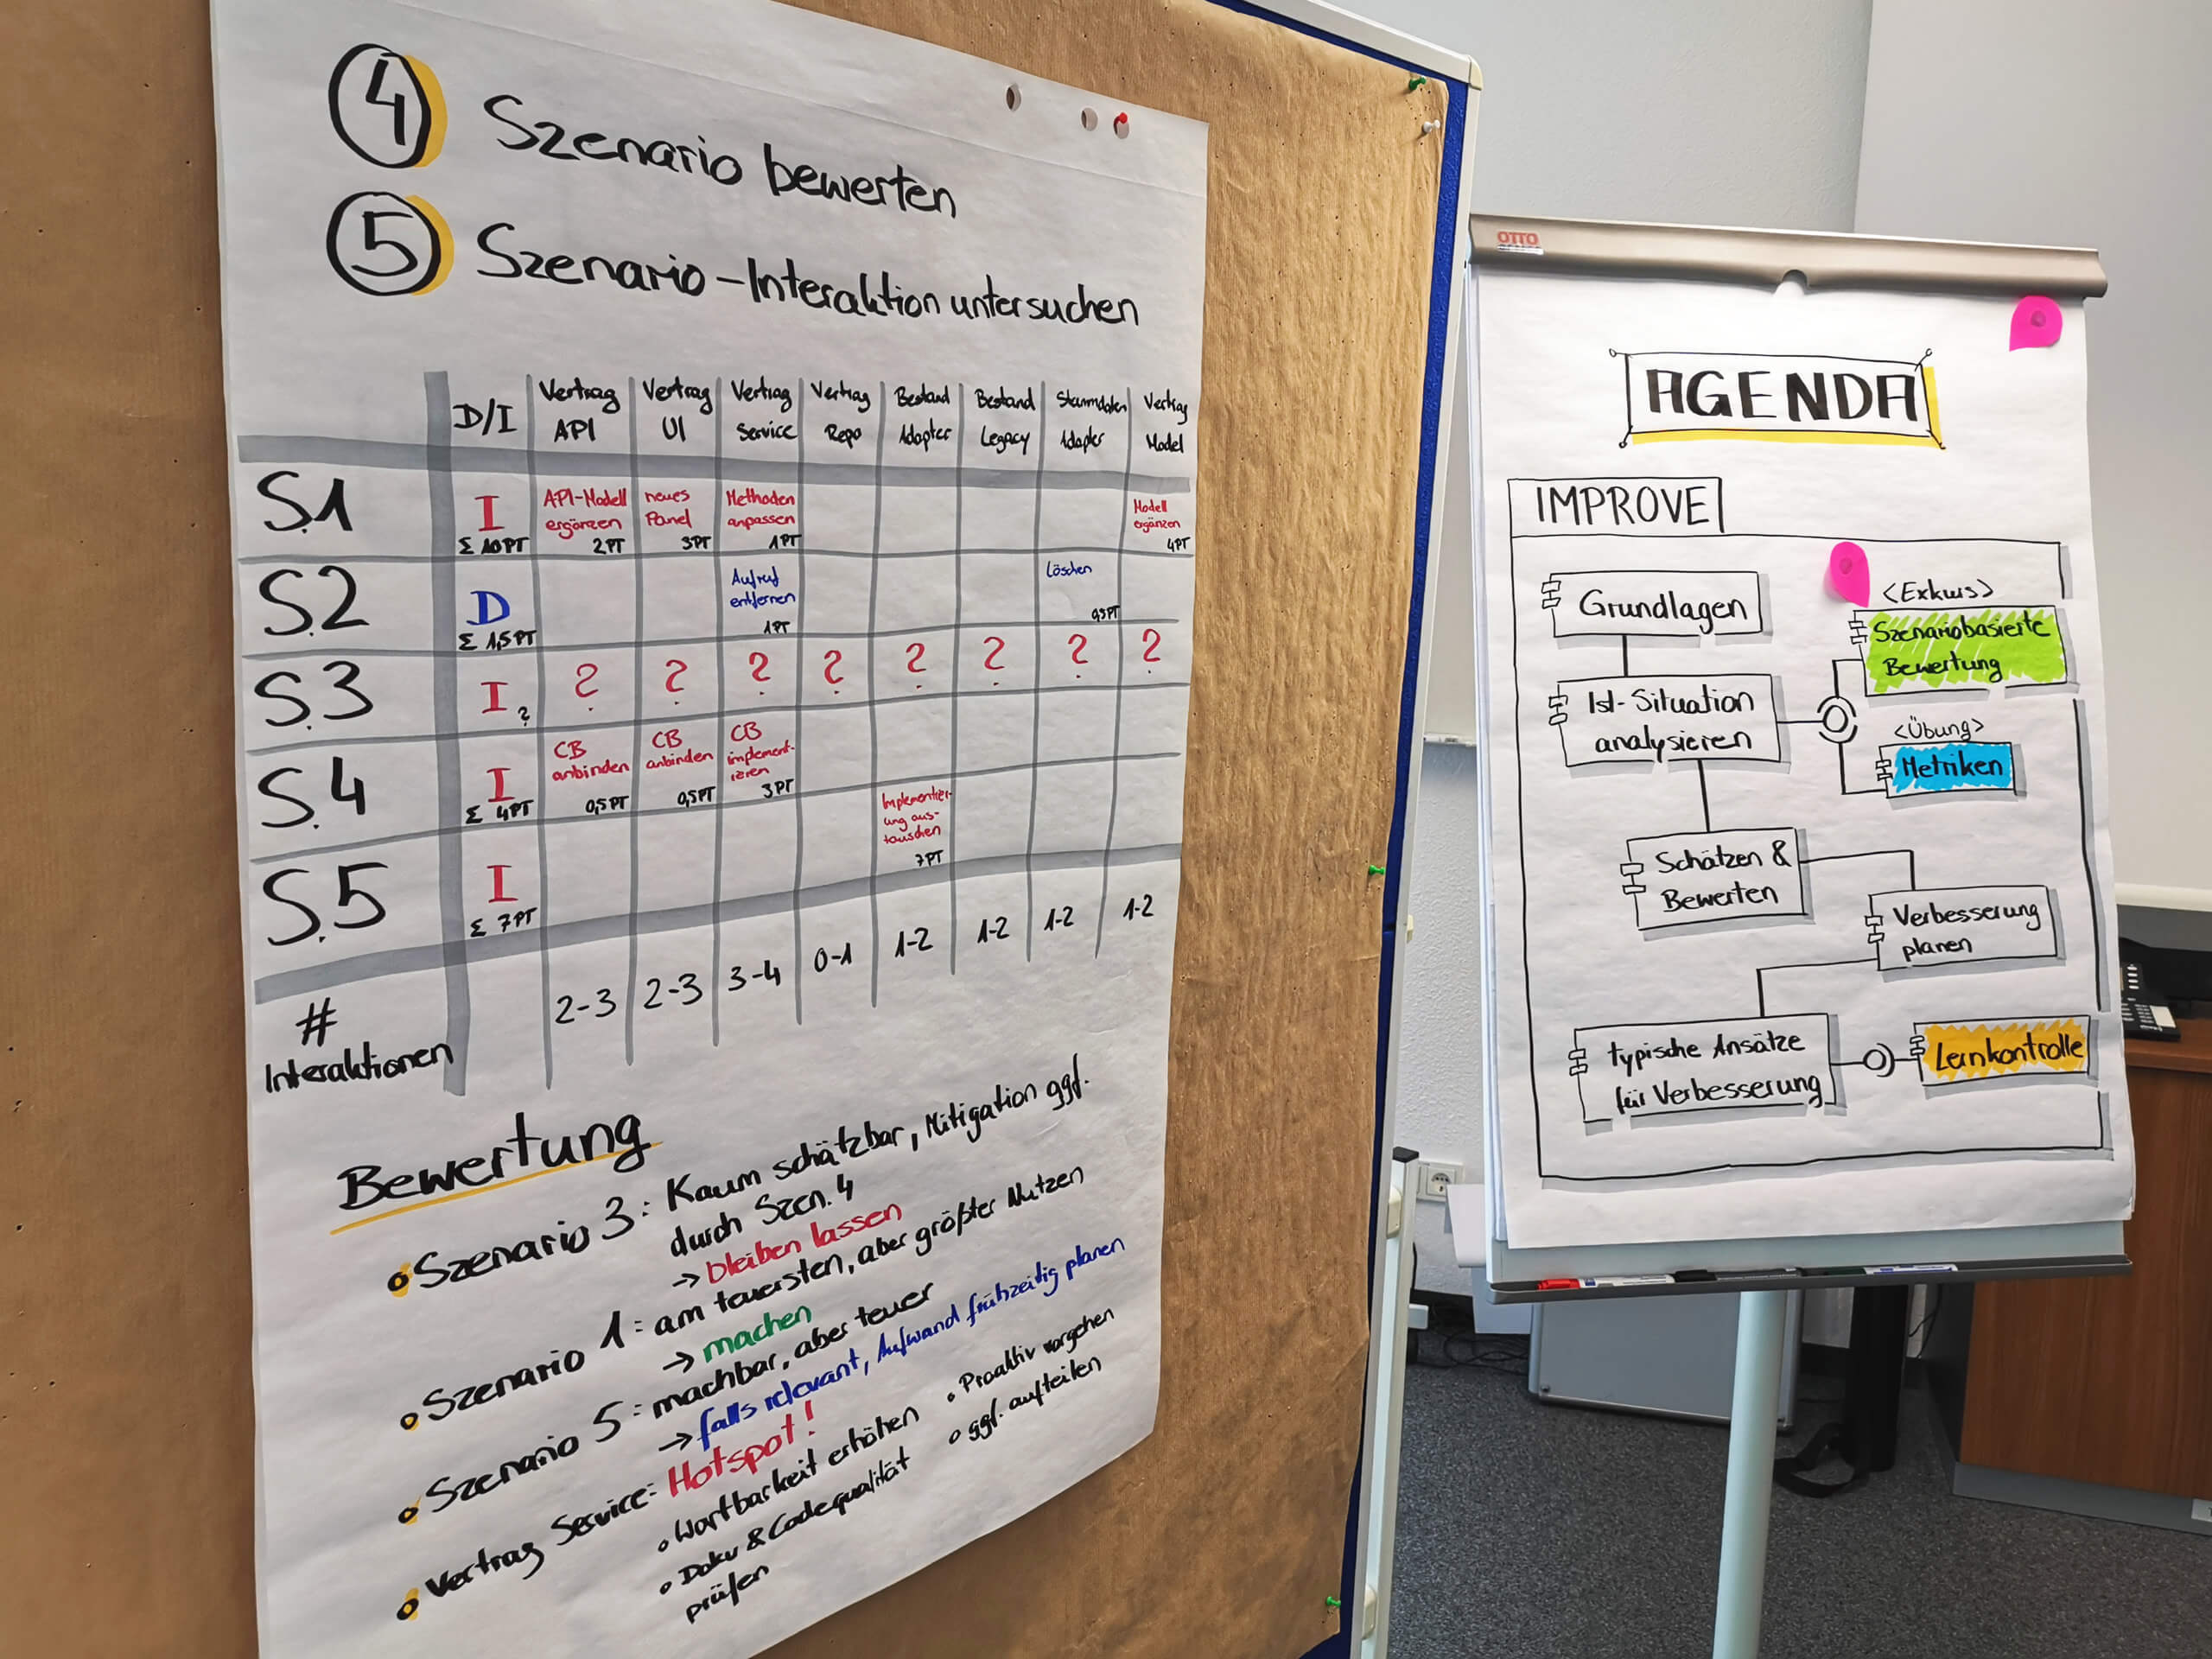 4 Szenario bewerten
5 Szenario-Interaktion untersuchen
D/I
Vertrag
API
Vertrag
UI
Vertrag
Service
Vertrag
Repo
Bestand
Adapter
Bestand
Legacy
Stammdaten
Adapter
Vertrag
Model
S.1
I
Σ 10PT
API-Modell
ergänzen
2PT
neues
Panel
3PT
Methoden
anpassen
1PT
Modell
ergänzen
4PT
S.2
D
Σ 1,5PT
Aufruf
entfernen
1PT
Löschen
0,5PT
S.3
I ?
? ? ? ? ? ? ? ?
S.4
I
Σ 4PT
CB
anbinden
0,5PT
CB
anbinden
0,5PT
CB
implement-
ieren
3PT
S.5
I
Σ 7PT
Implementier-
ung aus-
tauschen
7PT
#
Interaktionen
2-3 2-3 3-4 0-1 1-2 1-2 1-2 1-2
Bewertung
Szenario 3: Kaum schätzbar, Mitigation ggf.
durch Szen. 4
→ bleiben lassen
Szenario 1: am teuersten, aber größter Nutzen
→ machen
Szenario 5: machbar, aber teuer
→ falls relevant, Aufwand frühzeitig planen
Vertrag Service: Hotspot!
Wartbarkeit erhöhen
Doku & Codequalität
prüfen
Proaktiv vorgehen
ggf. aufteilen
OTTO
AGENDA
IMPROVE
Grundlagen
<Exkurs>
Szenariobasierte
Bewertung
Ist-Situation
analysieren
<Übung>
Metriken
Schätzen &
Bewerten
Verbesserung
planen
typische Ansätze
für Verbesserung
Lernkontrolle